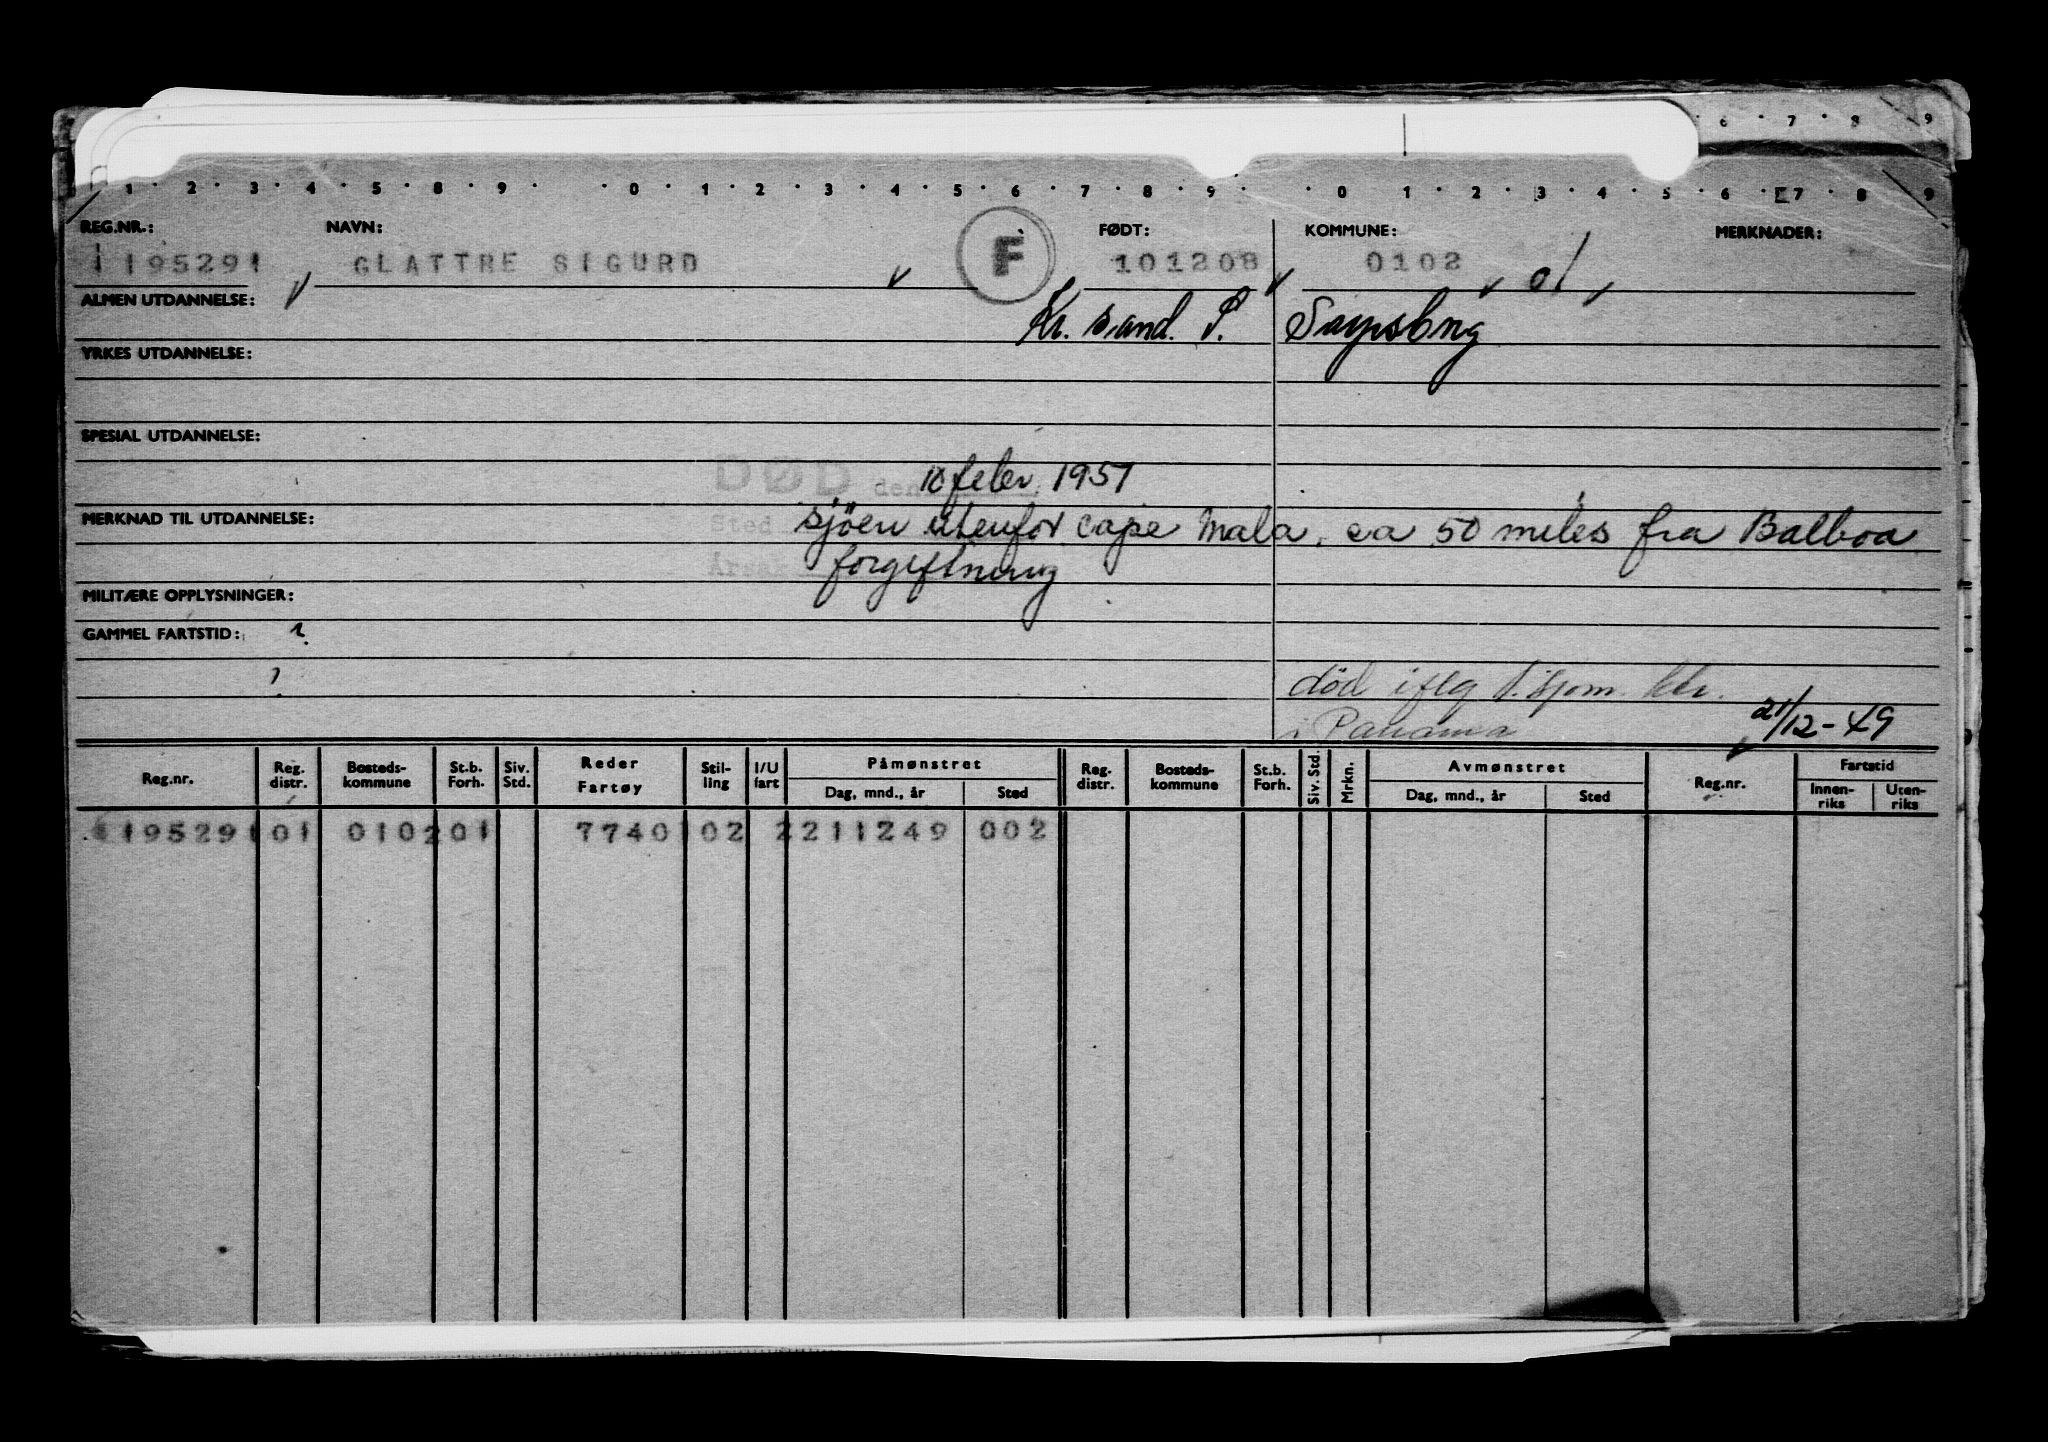 6 · 7 · 8 · 9
1 · 2 · 3 · 4 · 5 · 8 · 9 · · 0 · 1 · 2 · 3 · 4 · 5 · 6 · 7 · 8 · 9 · · 0 · 1 · 2 · 3 · 4 · 5 · 6 · 7 · 8 · 9
REG.NR.: NAVN: F FØDT: KOMMUNE: MERKNADER:
1195291 GLATTRE SIGURD 101208 0102 01
ALMEN UTDANNELSE: Kr. sand. S. Sarpsborg
YRKES UTDANNELSE:
SPESIAL UTDANNELSE:
DØD den 10 febr 1951
MERKNAD TIL UTDANNELSE: Sted sjöen utenfor cape Mala. ca 50 miles fra Balboa
Årsak forgiftning
MILITÆRE OPPLYSNINGER:
GAMMEL FARTSTID: ?
?
død iflg sjøm. ktr.
i Panama 21/12-49
Reg.nr. Reg. distr. Bosteds-kommune St.b. Forh. Siv. Std. Reder Fartøy Stil-ling I/U fart Påmønstret Dag, mnd., år Sted Reg. distr. Bosteds-kommune St.b. Forh. Siv. Std. Mrkn. Avmønstret Dag, mnd., år Sted Reg.nr. Fartstid Innen-riks Uten-riks
1195291 01 0102 01 7740 02 2 211249 002